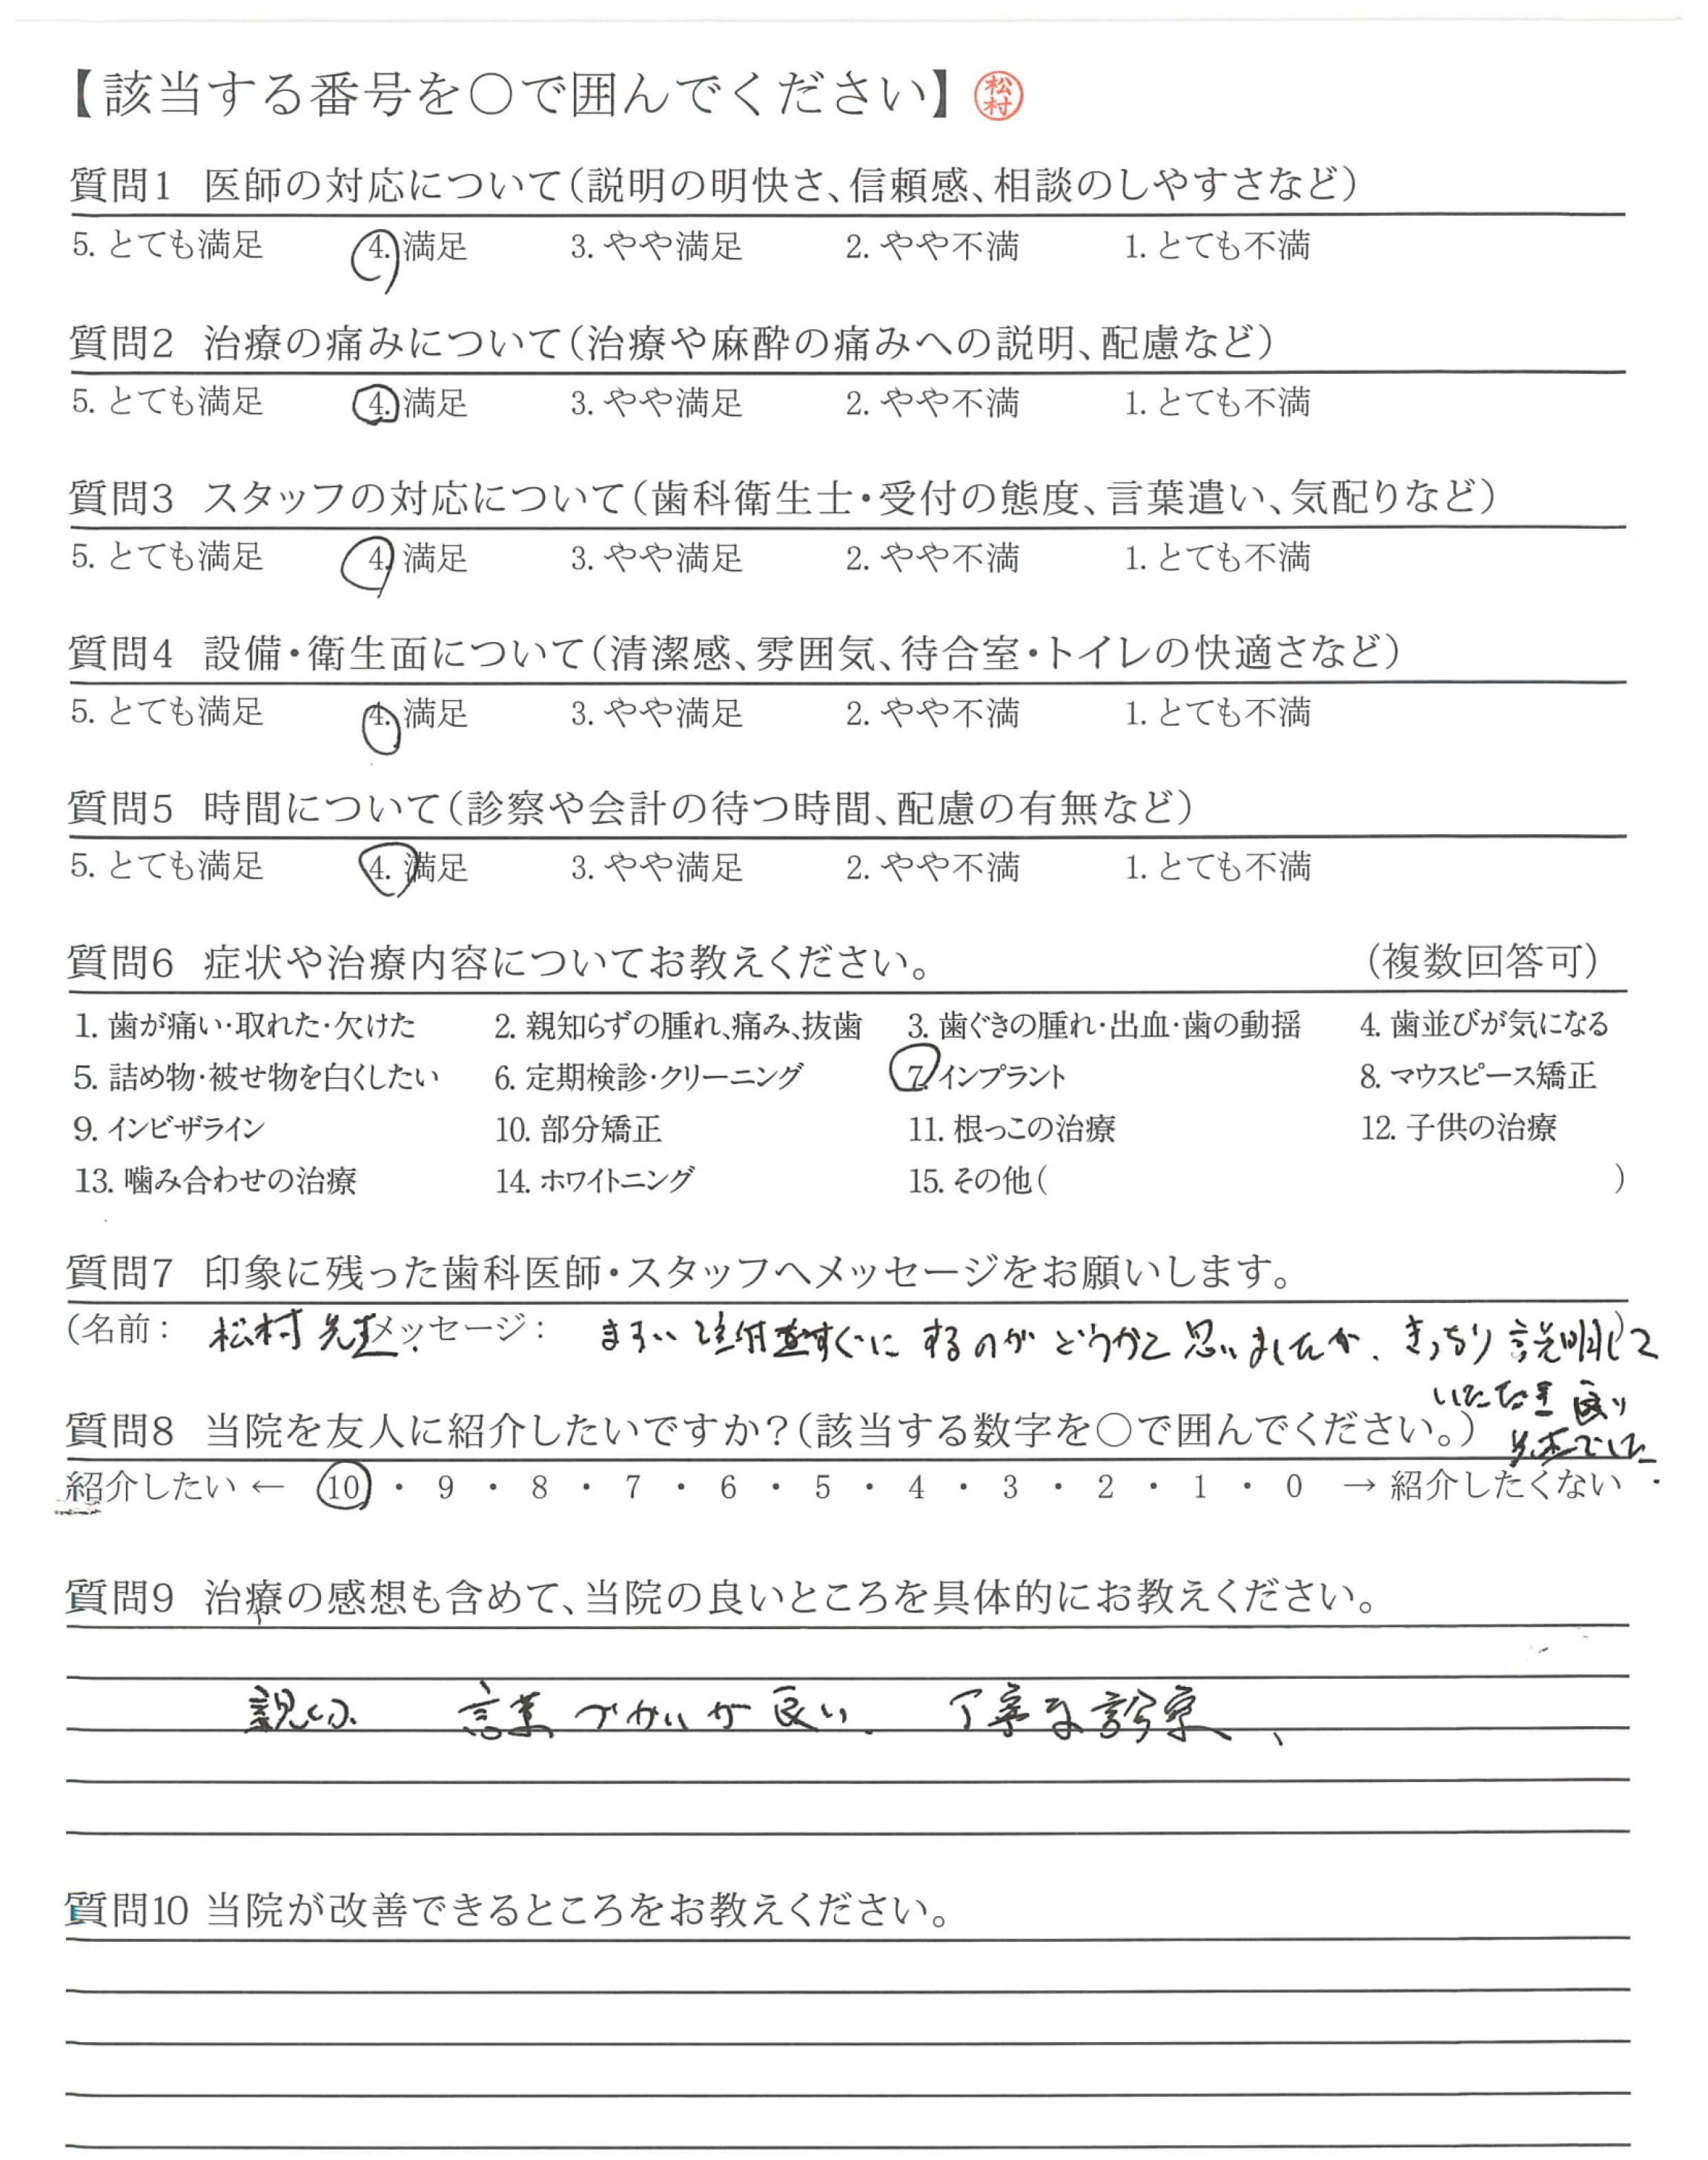 【該当する番号を〇で囲んでください】 松村
質問1 医師の対応について(説明の明快さ、信頼感、相談のしやすさなど)
5. とても満足 4. 満足 3. やや満足 2. やや不満 1. とても不満
質問2 治療の痛みについて(治療や麻酔の痛みへの説明、配慮など)
5. とても満足 4. 満足 3. やや満足 2. やや不満 1. とても不満
質問3 スタッフの対応について(歯科衛生士・受付の態度、言葉遣い、気配りなど)
5. とても満足 4. 満足 3. やや満足 2. やや不満 1. とても不満
質問4 設備・衛生面について(清潔感、雰囲気、待合室・トイレの快適さなど)
5. とても満足 4. 満足 3. やや満足 2. やや不満 1. とても不満
質問5 時間について(診察や会計の待つ時間、配慮の有無など)
5. とても満足 4. 満足 3. やや満足 2. やや不満 1. とても不満
質問6 症状や治療内容についてお教えください。 (複数回答可)
1. 歯が痛い・取れた・欠けた 2. 親知らずの腫れ、痛み、抜歯 3. 歯ぐきの腫れ・出血・歯の動揺 4. 歯並びが気になる
5. 詰め物・被せ物を白くしたい 6. 定期検診・クリーニング 7. インプラント 8. マウスピース矯正
9. インビザライン 10. 部分矯正 11. 根っこの治療 12. 子供の治療
13. 噛み合わせの治療 14. ホワイトニング 15. その他( )
質問7 印象に残った歯科医師・スタッフへメッセージをお願いします。
(名前: 松村先生 メッセージ: ますい注射をすぐにするのがどうかと思いましたが、きっちり説明して)
いただき良い
質問8 当院を友人に紹介したいですか?(該当する数字を〇で囲んでください。)
でした.
紹介したい ← 10 ・ 9 ・ 8 ・ 7 ・ 6 ・ 5 ・ 4 ・ 3 ・ 2 ・ 1 ・ 0 → 紹介したくない
質問9 治療の感想も含めて、当院の良いところを具体的にお教えください。
親切、 言葉づかいが良い、 丁寧な診察、
質問10 当院が改善できるところをお教えください。